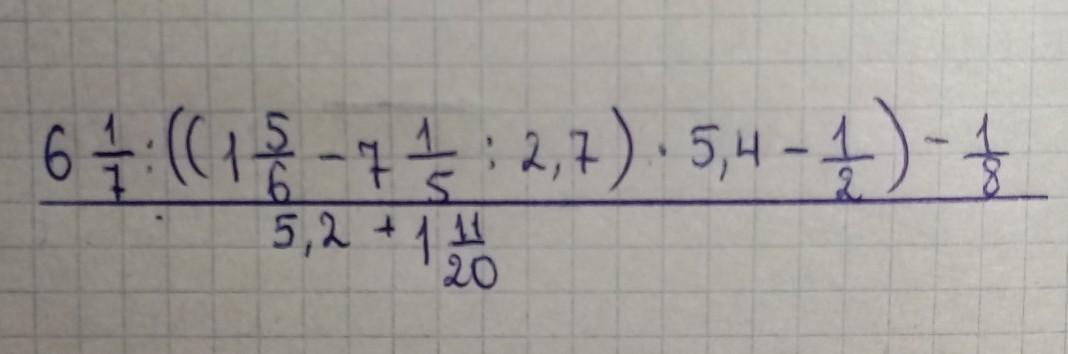 6 1/7 : ((1 5/6 - 7 1/5 : 2,7) · 5,4 - 1/2) - 1/8
5,2 + 1 11/20